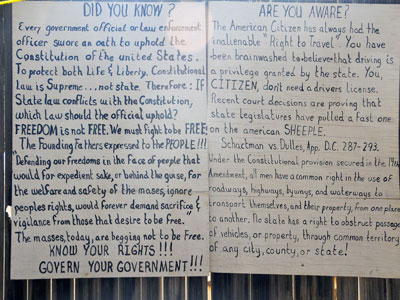 DID YOU KNOW?
Every government official or law enforcement
officer swore an oath to uphold the
Constitution of the united States.
To protect both Life & Liberty, Constitutional
law is Supreme...not state. Therefore: If
State law conflicts with the Constitution,
which Law should the official uphold?
FREEDOM is not FREE. We must fight to be FREE
The Founding Fathers expressed to the PEOPLE!!!
Defending our freedoms in the face of people that
would for expedient sake, or behind the guise, for
the welfare and safety of the mases, ignore
peoples rights, would forever demand sacrifice &
vigilance from those that desire to be free."
The masses, today, are begging not to be Free.
KNOW YOUR RIGHTS!!!
GOVERN YOUR GOVERNMENT!!!
ARE YOU AWARE?
The American Citizen has always had the
inalienable "Right to Travel". You have
been brainwashed to believe that driving is
a privilege granted by the state. You,
CITIZEN, don't need a drivers license.
Recent court decisions are proving that
state legislatures have pulled a fast one
on the american SHEEPLE.
Schactman vs. Dulles, App. D.C. 287-293.
Under the Constitution provision secured in the 14th
Amendment, all men have a common right in the use of
roadways, highways, byways, and waterways to
transport themselves, and their property, from one place
to another. No state has a right to obstruct passage
of vehicles, or property, through common territory
of any city, county, or state!